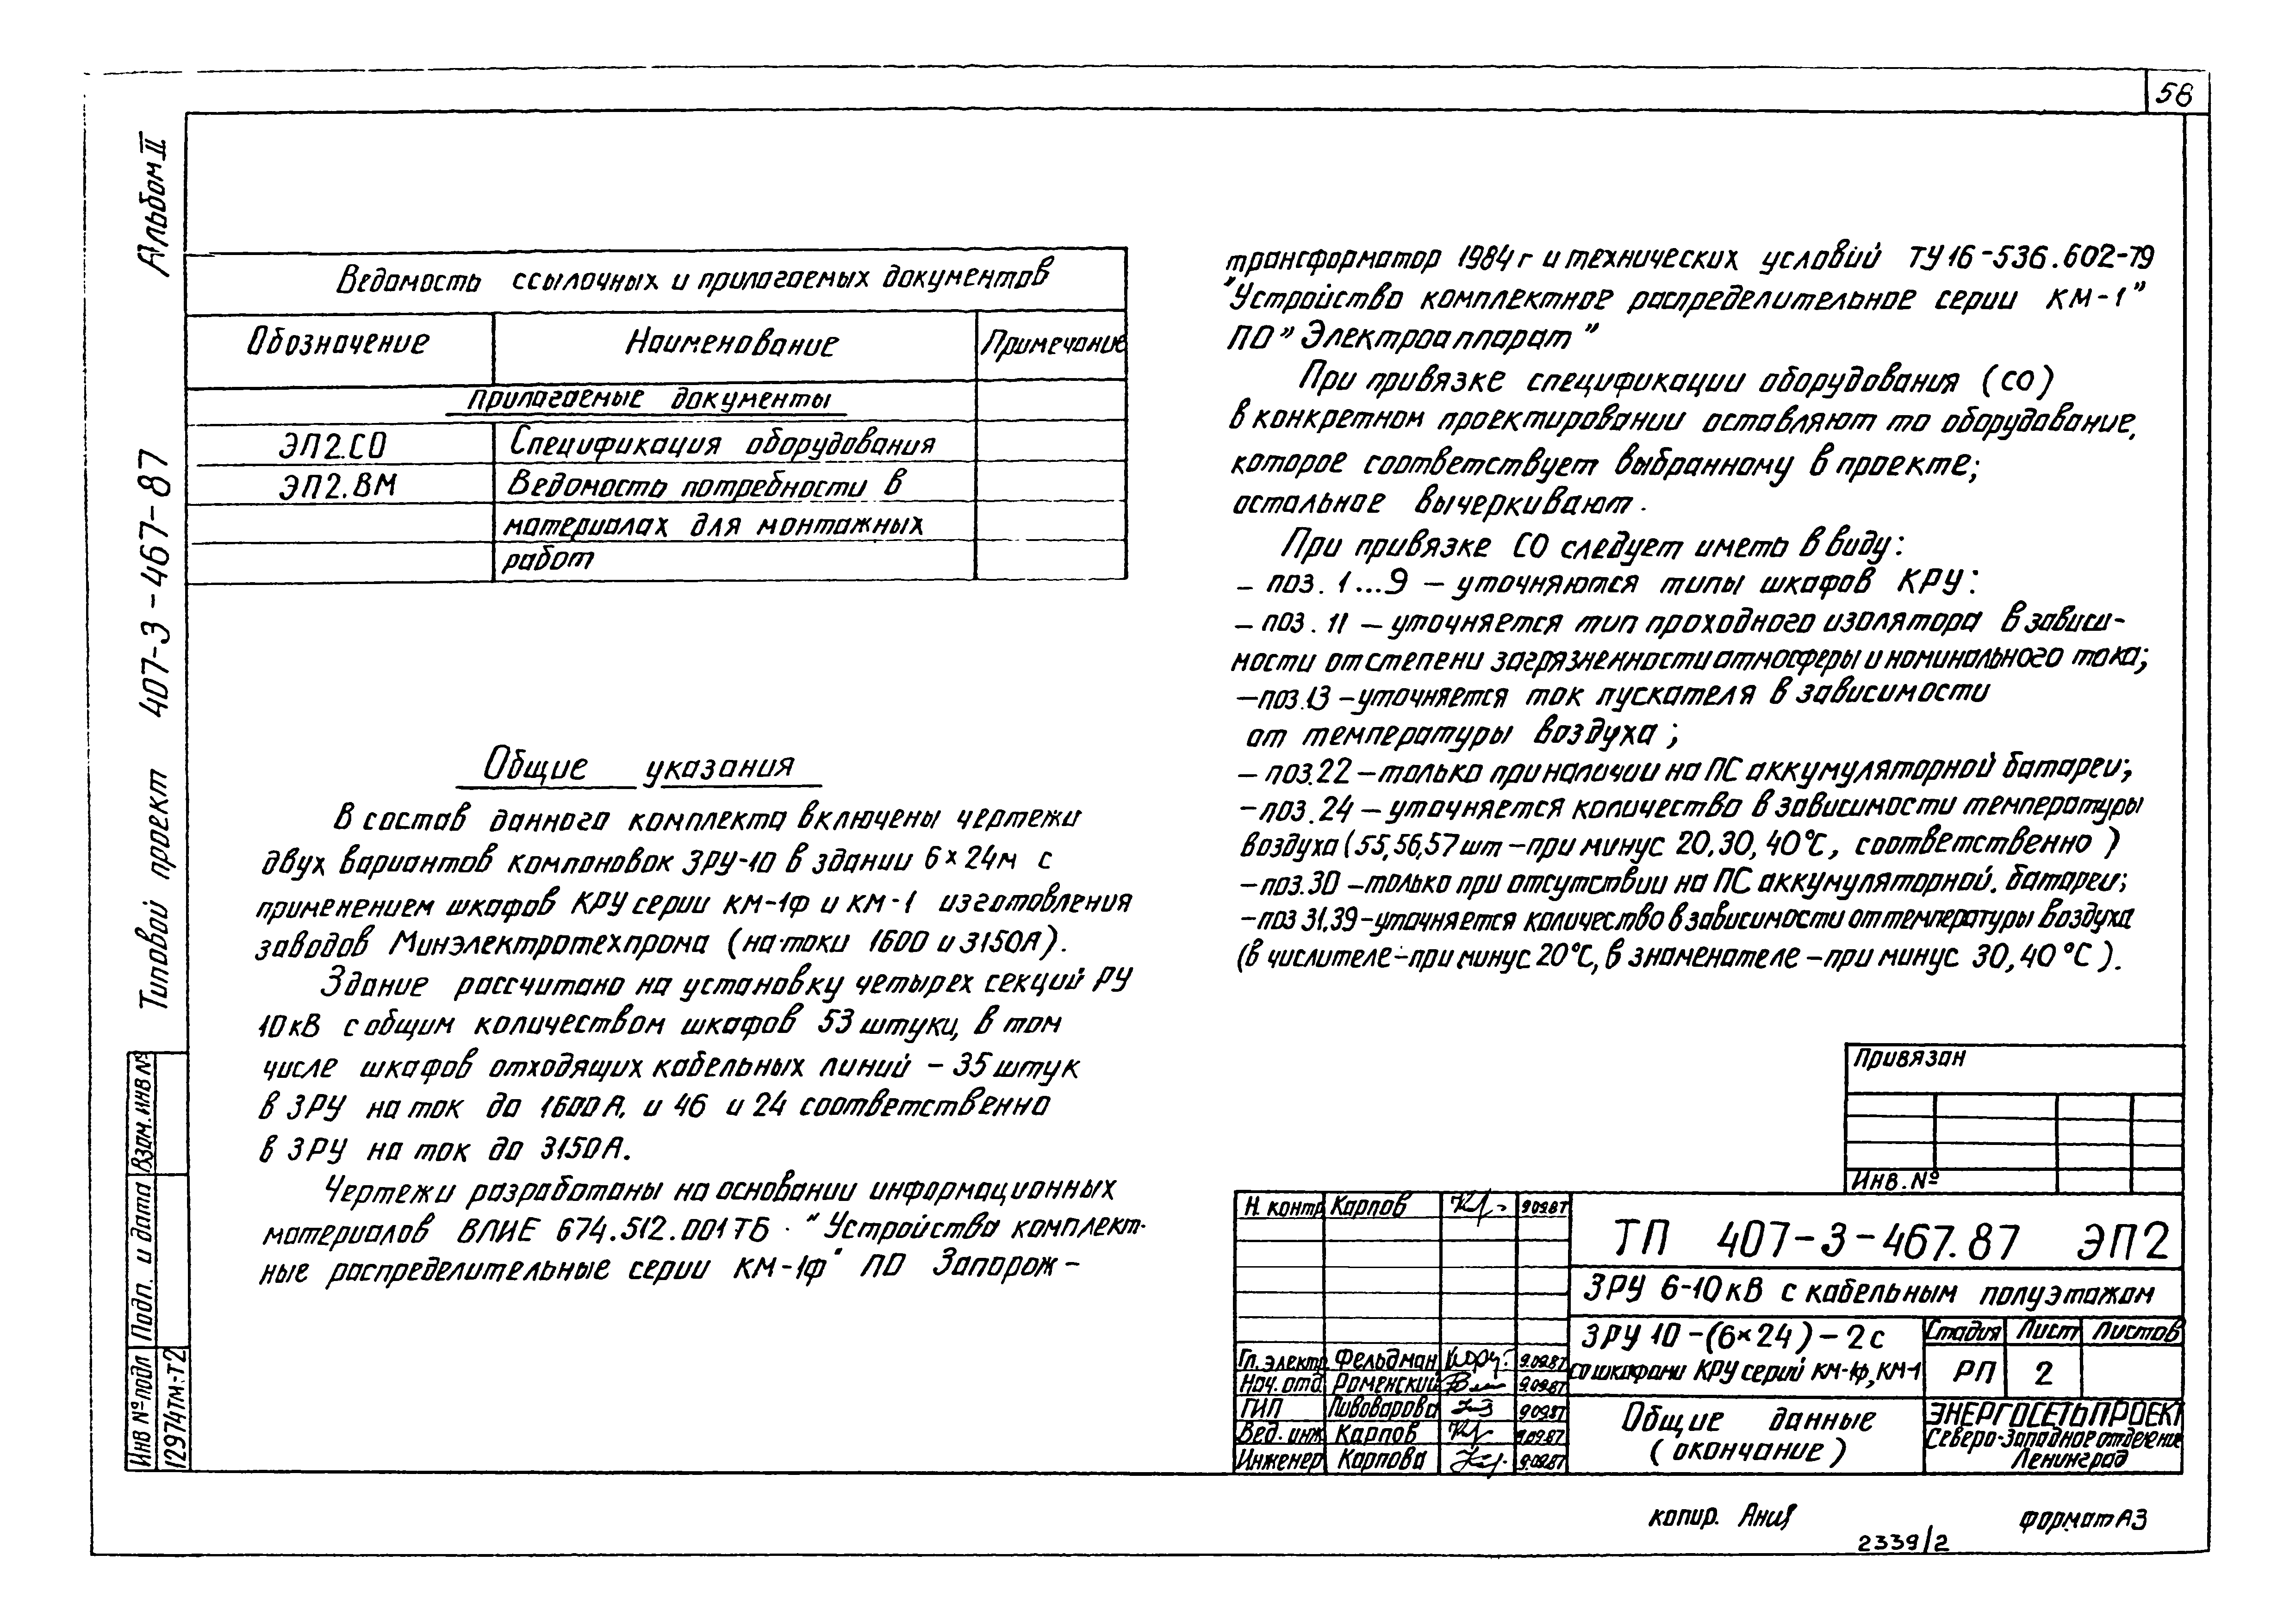 58
Альбом II
Типовой проект 407-3-467-87
Ведомость ссылочных и прилагаемых документов
Обозначение Наименование Примечание
Прилагаемые документы
ЭП2.СО Спецификация оборудования
ЭП2.ВМ Ведомость потребности в
материалах для монтажных
работ
Общие указания
В состав данного комплекта включены чертежи
двух вариантов компоновок ЗРУ-10 в здании 6×24м с
применением шкафов КРУ серии КМ-1ф и КМ-1 изготовления
заводов Минэлектротехпрома (на токи 1600 и 3150А).
Здание рассчитано на установку четырех секций РУ
10кВ с общим количеством шкафов 53 штуки, в том
числе шкафов отходящих кабельных линий – 35 штук
в ЗРУ на ток до 1600А, и 46 и 24 соответственно
в ЗРУ на ток до 3150А.
Чертежи разработаны на основании информационных
материалов ВЛИЕ 674.512.001ТБ. "Устройства комплект-
ные распределительные серии КМ-1ф" ПО Запорож-
трансформатор 1984г и технических условий ТУ16-536.602-79
"Устройство комплектное распределительное серии КМ-1"
ПО "Электроаппарат"
При привязке спецификации оборудования (СО)
в конкретном проектировании оставляют то оборудование,
которое соответствует выбранному в проекте;
остальное вычеркивают.
При привязке СО следует иметь в виду:
– поз. 1...9 – уточняются типы шкафов КРУ:
– поз. 11 – уточняется тип проходного изолятора в зависи-
мости от степени загрязненности атмосферы и номинального тока;
– поз.13 – уточняется ток пускателя в зависимости
от температуры воздуха;
– поз.22 – только при наличии на ПС аккумуляторной батареи;
– поз. 24 – уточняется количество в зависимости температуры
воздуха (55,56,57 шт – при минус 20,30,40°С, соответственно)
– поз.30 – только при отсутствии на ПС аккумуляторной. батареи;
– поз 31,39 – уточняется количество в зависимости от температуры воздуха
(в числителе – при минус 20°С, в знаменателе – при минус 30,40°С).
Привязан
Инв. №
Н. контр Карпов 9.09.87
ТП 407-3-467.87 ЭП2
ЗРУ 6-10кВ с кабельным полуэтажом
ЗРУ 10-(6×24)-2с
со шкафами КРУ серий КМ-1ф, КМ-1
Стадия Лист Листов
РП 2
Гл. электр Фельдман 9.09.87
Нач. отд Роменский 9.09.87
ГИП Пивоварова 9.09.87
Вед. инж Карпов 9.09.87
Инженер Карпова 9.09.87
Общие данные
(окончание)
ЭНЕРГОСЕТЬПРОЕКТ
Северо-Западное отделение
Ленинград
Взам. инв №
Подп. и дата
Инв № подл
12974тм-т2
копир.
формат А3
2339/2